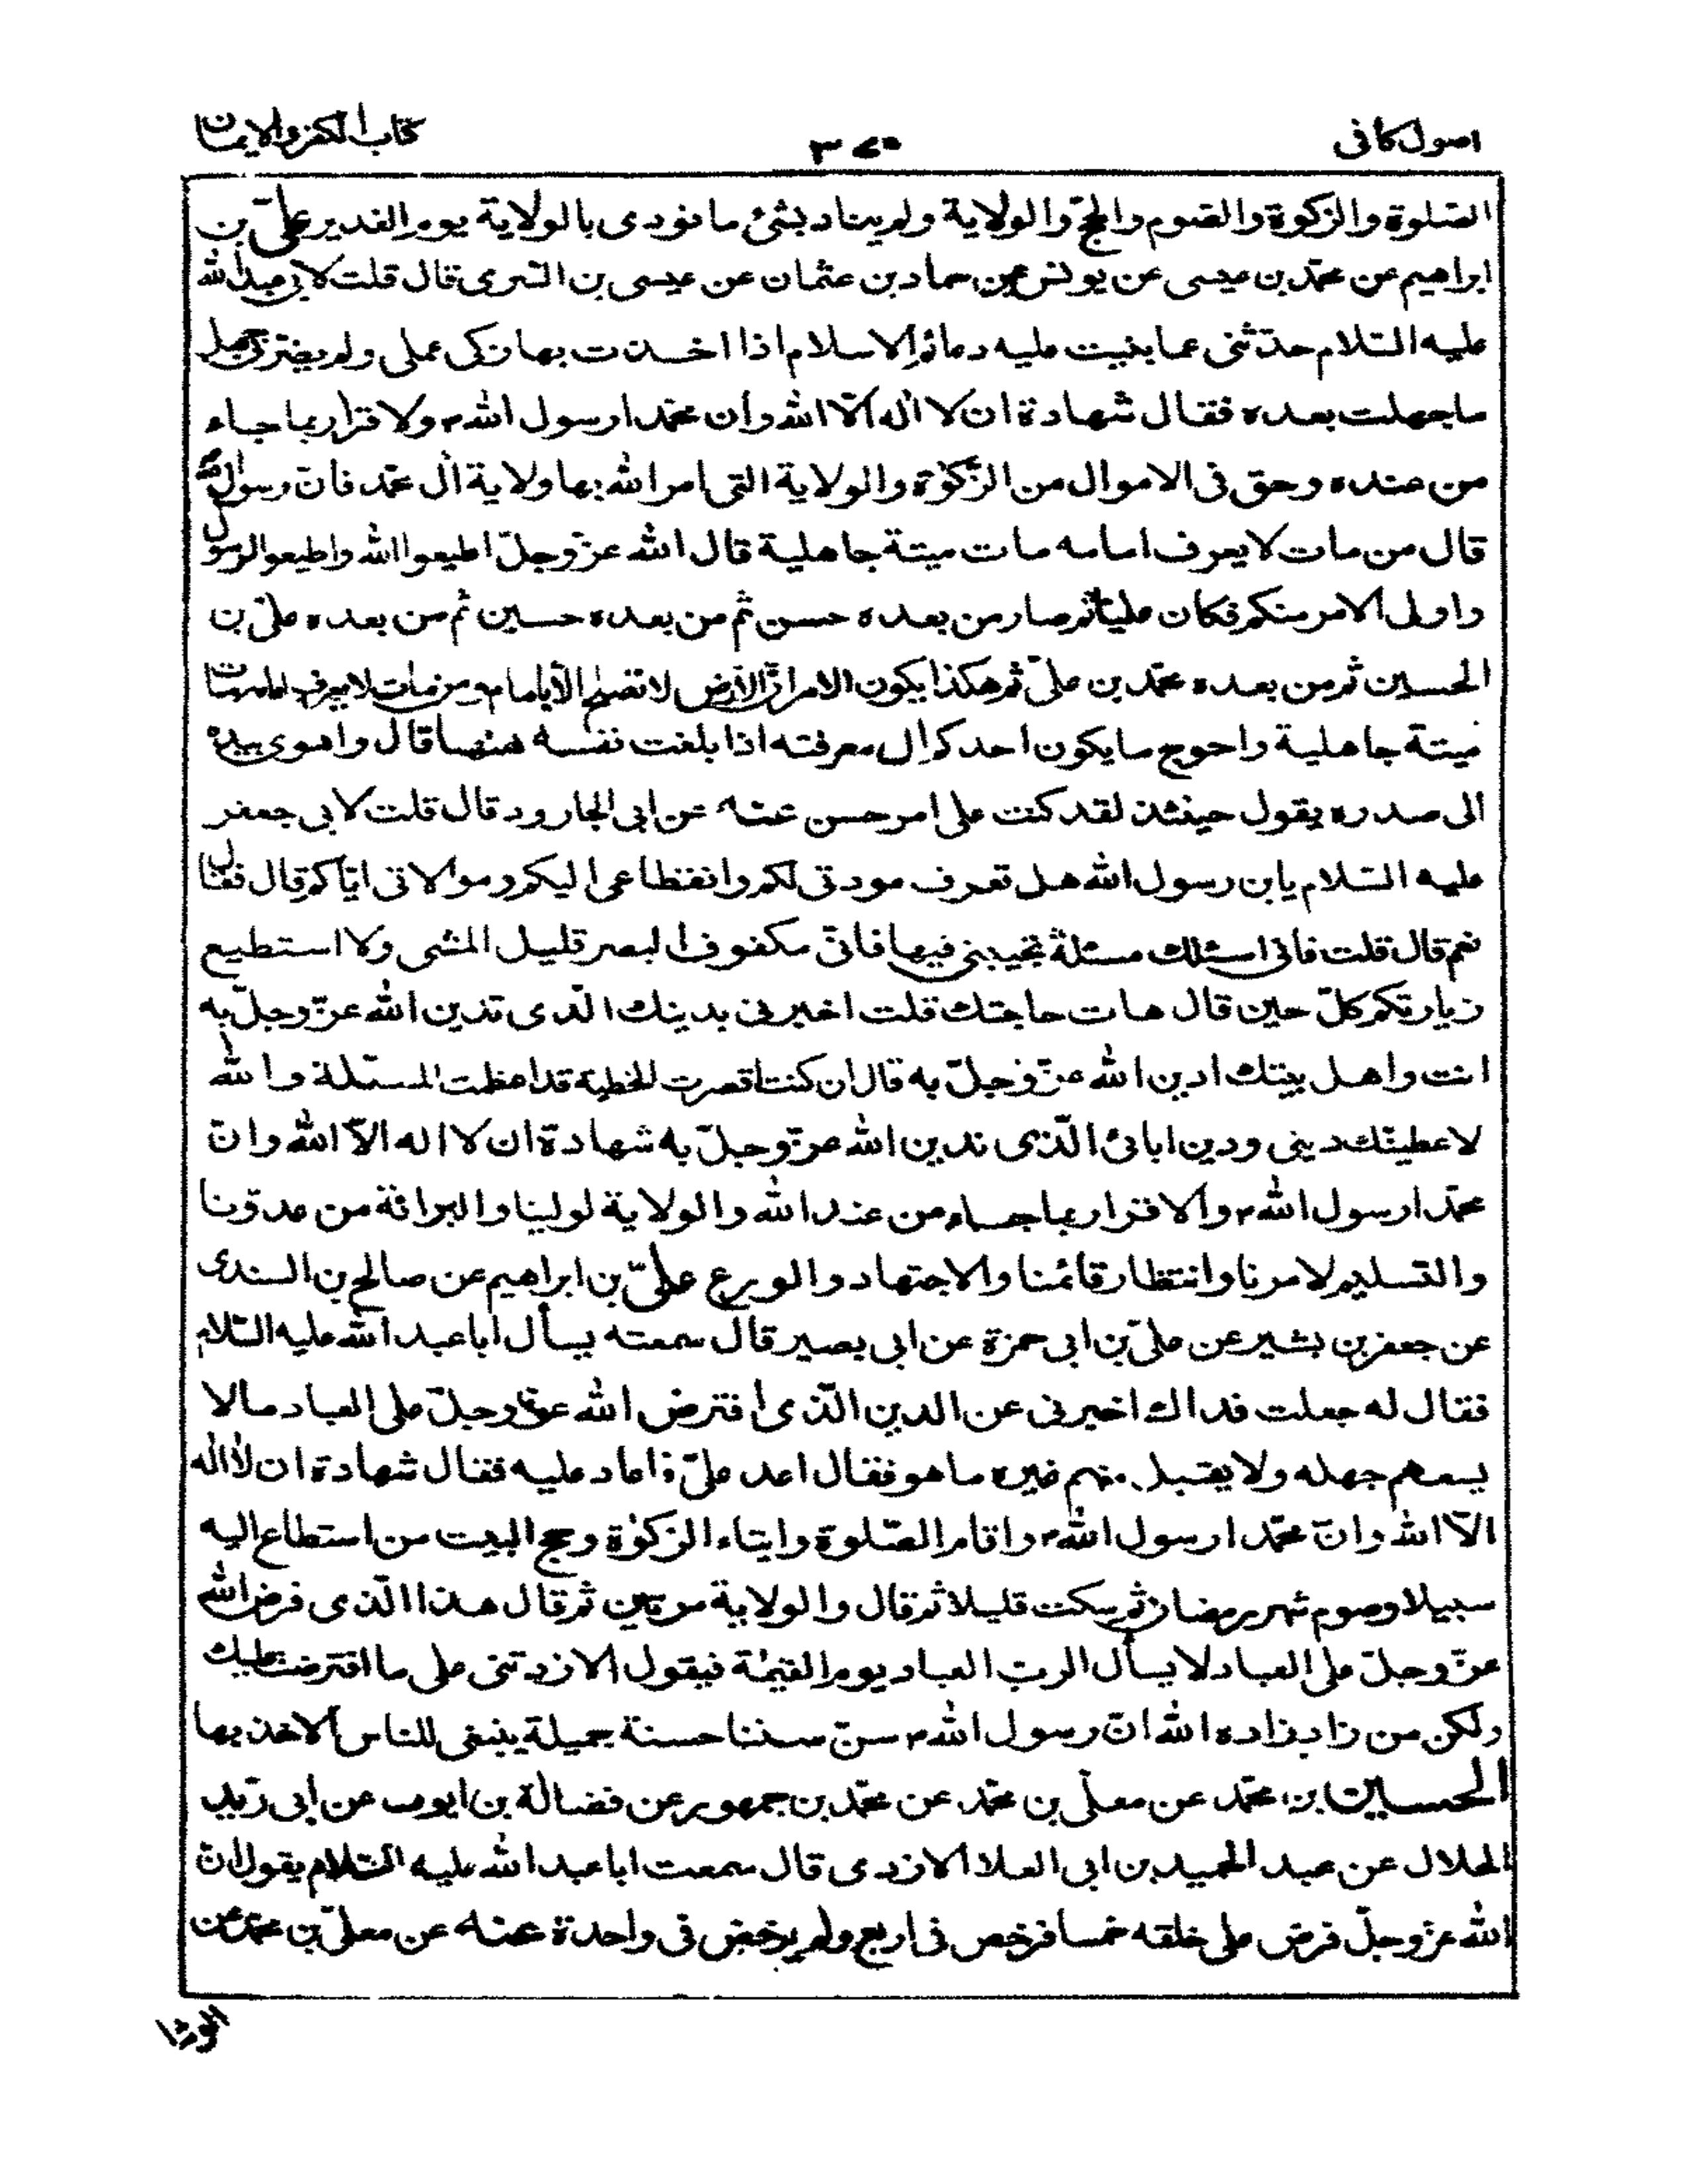 اصول كافى
٣٧٥
كتاب الكفر والايمان
الصّلوة والزكوة والصّوم والحجّ والولاية ولم يناد بشئ ما نودى بالولاية يوم الغدير علىّ بن
ابراهيم عن محمّد بن عيسى عن يونس عن حماد بن عثمان عن عيسى بن السّرى قال قلت لابى عبد الله
عليه السّلام حدّثنى عما بنيت عليه دعائم الاسلام اذا اخذت بها زكى عملى ولم يضرّنى جهل
ما جهلت بعده فقال شهادة ان لا اله الّا الله وان محمّدا رسول الله ص ولاقرار بما جاء
من عنده وحق فى الاموال من الزّكوٰة والولاية التى امر الله بها ولاية آل محمّد فان رسول الله ص
قال من مات لا يعرف امامه مات ميتة جاهلية قال الله عزّ وجلّ اطيعوا الله واطيعوا الرسول
واولى الامر منكم فكان عليا ثم صار من بعده حسن ثمّ من بعده حسين ثم من بعده علىّ بن
الحسين ثم من بعده محمّد بن علىّ ثم هكذا يكون الامر انّ الارض لا تصلح الّا بامام ومن مات لا يعرف امامه مات
ميتة جاهلية واحوج ما يكون احدكم ال معرفته اذا بلغت نفسه هٰهنا قال واهوى بيده
الى صدره يقول حينئذ لقد كنت على امر حسن عنه عن ابى الجارود قال قلت لابى جعفر
عليه السّلام يابن رسول الله هل تعرف مودتى لكم وانقطاعى اليكم وموالاتى ايّاكم قال فقال
نعم قال قلت فانى اسئلك مسئلة تجيبنى فيها فانى مكفوف البصر قليل المشى ولا استطيع
زيارتكم كلّ حين قال هات حاجتك قلت اخبرنى بدينك الّذى تدين الله عزّ وجلّ به
انت واهل بيتك ادين الله عزّ وجلّ به قال ان كنت اقصرت الخطبة قد اعظمت المسئلة والله
لاعطينّك دينى ودين ابائى الّذى ندين الله عزّ وجلّ به شهادة ان لا اله الّا الله وانّ
محمّدا رسول الله ص والاقرار بما جاء من عند الله والولاية لولينا والبرائة من عدوّنا
والتسليم لامرنا وانتظار قائمنا والاجتهاد والورع علىّ بن ابراهيم عن صالح بن السندى
عن جعفر بن بشير عن علىّ بن ابى حمزة عن ابى بصير قال سمعته يسأل ابا عبد الله عليه السّلام
فقال له جعلت فداك اخبرنى عن الدين الّذى افترض الله عزّ وجلّ على العباد ما لا
يسعهم جهله ولا يقبل منهم غيره ما هو فقال اعد علىّ فاعاد عليه فقال شهادة ان لا اله
الّا الله وانّ محمّدا رسول الله ص واقام الصّلوة وايتاء الزكوٰة وحج البيت من استطاع اليه
سبيلا وصوم شهر رمضان ثم سكت قليلا ثم قال والولاية مرتين ثم قال هذا الّذى فرض الله
عزّ وجلّ على العباد لا يسأل الرب العباد يوم القيمٰة فيقول الا زدتنى على ما افترضت عليك
ولكن من زاد زاده الله انّ رسول الله ص سنّ سننا حسنة جميلة ينبغى للناس الاخذ بها
الحسين بن محمّد عن معلّى بن محمّد عن محمّد بن جمهور عن فضالة بن ايوب عن ابى زيد
الحلال عن عبد الحميد بن ابى العلا الازدى قال سمعت ابا عبد الله عليه السّلام يقول انّ
الله عزّ وجلّ فرض على خلقه خمسا فرخص فى اربع ولم يرخص فى واحدة عنه عن معلىّ بن محمّد عن
الوشا